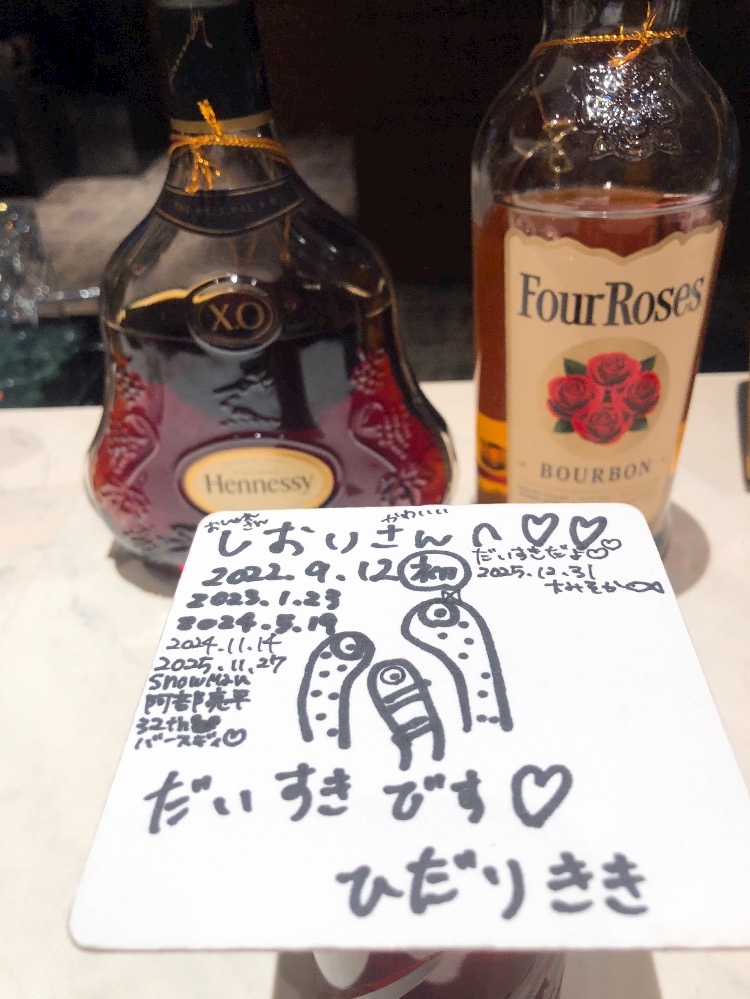 X.O
Hennessy
Four Roses
BOURBON
かわいい
しおりさんへ♡♡
だいすきだよ♡♡
2022.9.12 初
2025.12.31
大みそか
2023.1.23
2024.5.19
2024.11.14
2025.11.27
SnowMan
阿部亮平
32th
バースディ♡
だいすきです♡
ひだりきき